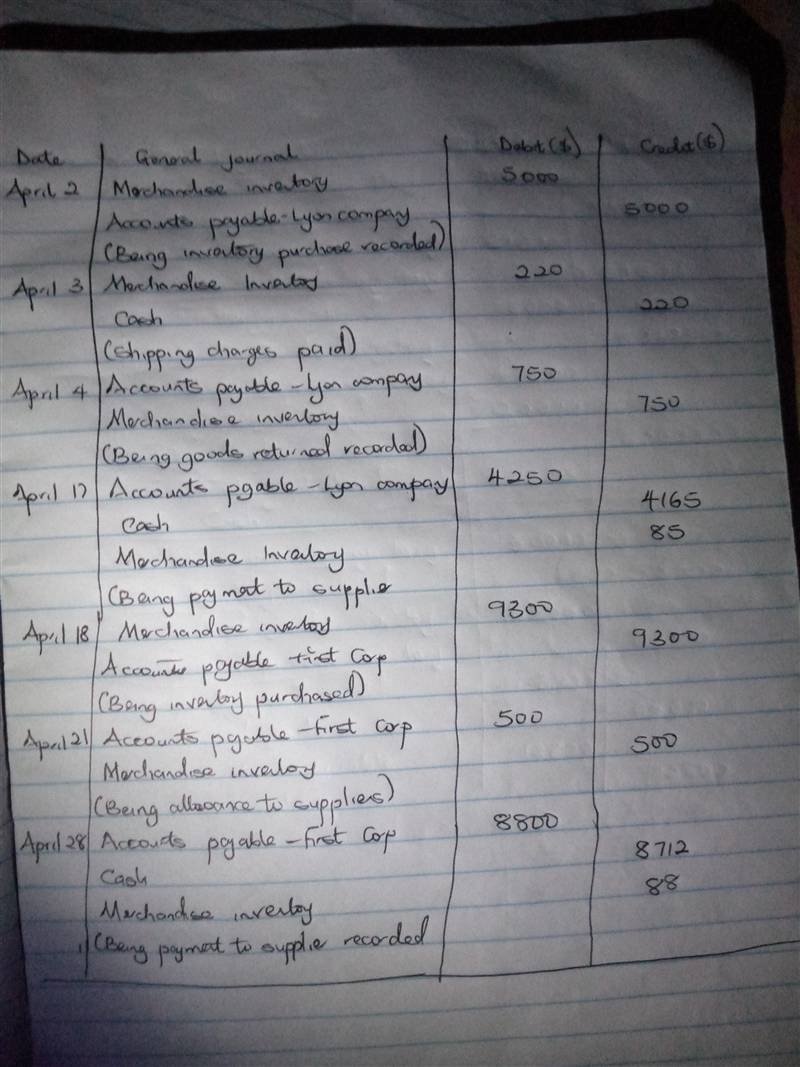 Date General journal Debit ($) Credit ($)
April 2 Merchandise inventory 5000
Accounts payable - Lyon compay 5000
(Being inventory purchase recorded)
April 3 Merchandise Inventoy 220
Cash 220
(Shipping charges paid)
April 4 Accounts payable - Lyon compay 750
Merchandise inventory 750
(Being goods returned recorded)
April 17 Accounts pgable - Lyon compay 4250
Cash 4165
Merchandise Inventoy 85
(Being paymat to supplie
April 18 Merchandise inventoy 9300
Accounts payable first Corp 9300
(Being inventory purchased)
April 21 Accounts pgable - first Corp 500
Merchandise inventoy 500
(Being allowance to suppliers)
April 28 Accouts pgable - first Corp 8800
Cash 8712
Merchandise inventoy 88
(Being paymat to supplie recorded